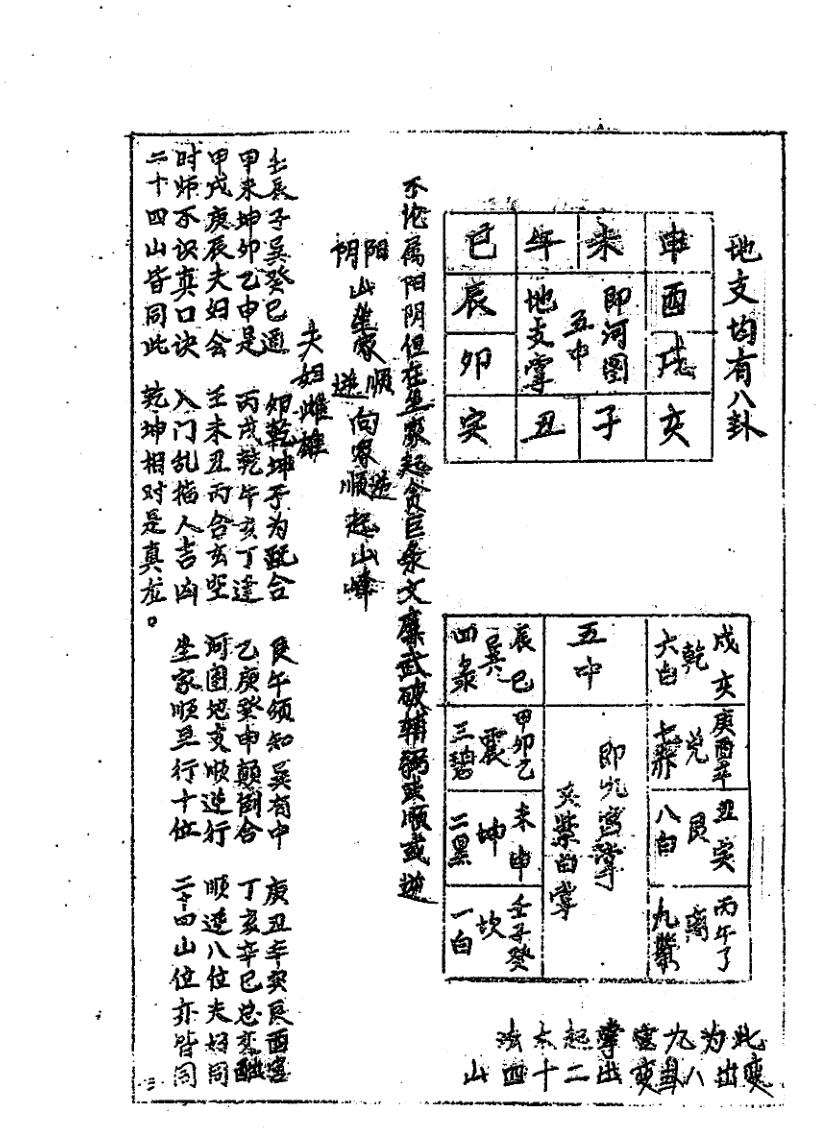 地支均有八卦
巳 午 未 申
辰 地支掌 五中 即河图 酉
卯 戌
寅 丑 子 亥
辰巳 巽 四录
五中
戌亥 乾 六白
甲卯乙 震 三碧
庚酉辛 兑 七赤
未申 坤 二黑
丑寅 艮 八白
壬子癸 坎 一白
丙午丁 离 九紫
即九宫掌
又紫白掌
此变
为出
九八
宫卦
掌变
起出
太二
法十
四
山
不伦属阳阴但在坐家起贪巨录文廉武破辅弼或顺或逆
阳阴山坐家顺逆向家逆顺起山峰
夫妇雌雄
壬辰子巽癸巳通 卯乾坤子为配合 艮午须知巽有中 庚丑辛寅艮酉宫
甲未坤卯乙申是 丙戌乾午亥丁逢 乙庚癸申颠倒合 丁亥辛巳总
甲戌庚辰夫妇会 壬未丑丙合玄空 河图地支顺逆行 顺逆八位夫妇同
时师不识真口诀 入门乱指人吉凶 坐家顺至行十位 二十四山位亦皆同
二十四山皆同此 乾坤相对是真龙。